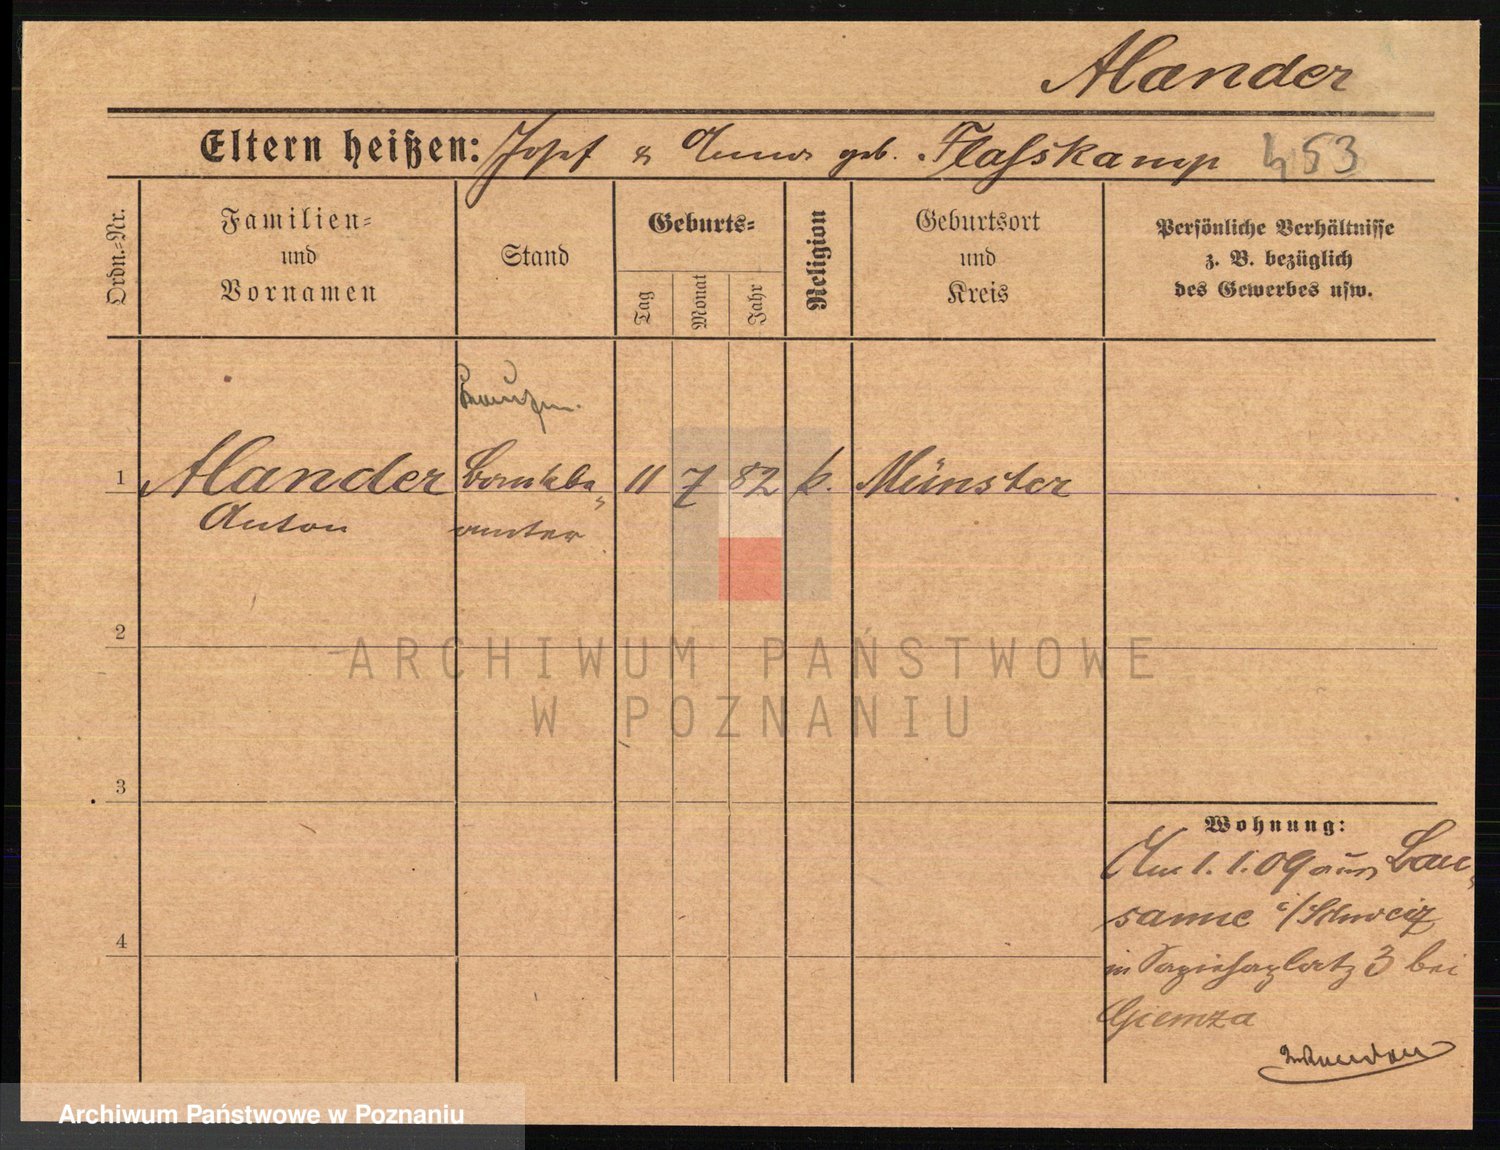 Alander
Eltern heißen: Josef & Anna geb. Flasskamp 453
Ordn.-Nr.
Familien-
und
Vornamen
Stand
Geburts-
Tag
Monat
Jahr
Religion
Geburtsort
und
Kreis
Persönliche Verhältnisse
z. B. bezüglich
des Gewerbes usw.
1 Alander 11 7 82 k. Münster
Anton
beamter
2
ARCHIWUM PAŃSTWOWE
W POZNANIU
3
Wohnung:
Am 1.1.09 aus Lau-
sanne i/Schweiz
in Sapiehaplatz 3 bei
Giemza
4
Archiwum Państwowe w Poznaniu